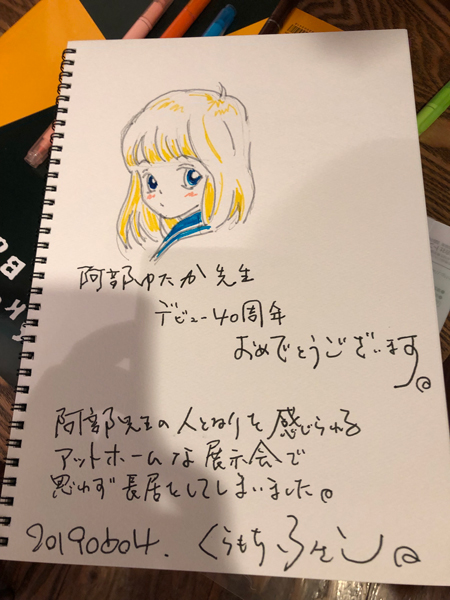 阿部ゆたか先生
デビュー40周年
おめでとうございます。
阿部先生の人となりを感じられる
アットホームな展示会で
思わず長居をしてしまいました。
20190604. くらもちふさこ